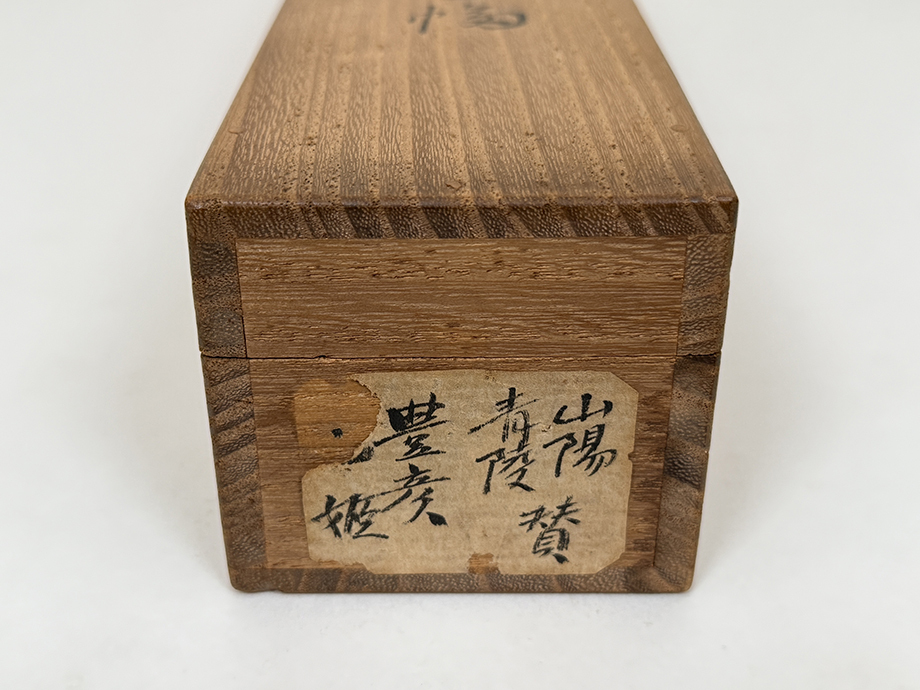 山陽
青陵
賛
豊彦
姫